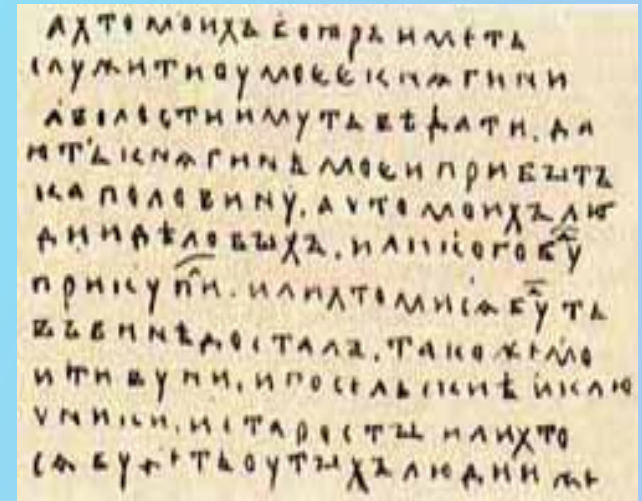 А ХТО МОИХЪ БОЯРЪ ИМЕТЬ
СЛУЖИТИ ОУ МОЕЕ КНѦГИНИ
А ВОЛОСТИ ИМУТЬ ВѢДАТИ. ДА
ЮТЬ КНѦГИНѢ МОЕИ ПРИБЫТЪ
КА ПОЛОВИНУ. А ЧТО МОИХЪ ЛЮ
ДИИ ДѢЛОВЫХЪ. ИЛИ КОГО БУ
ПРИКУПИ. ИЛИ ХТО МИ СѦ БУТЬ
ВЪ ВИНѢ ДОСТАЛЪ. ТАКОЖЕ МО
И ТИВУНИ. И ПОСЕЛЬСКИѢ И КЛЮ
ЧНИКИ. И СТАРОСТЫ ИЛИ ХТО
СѦ БУДЕТЬ ОУ ТЫХЪ ЛЮДИИ